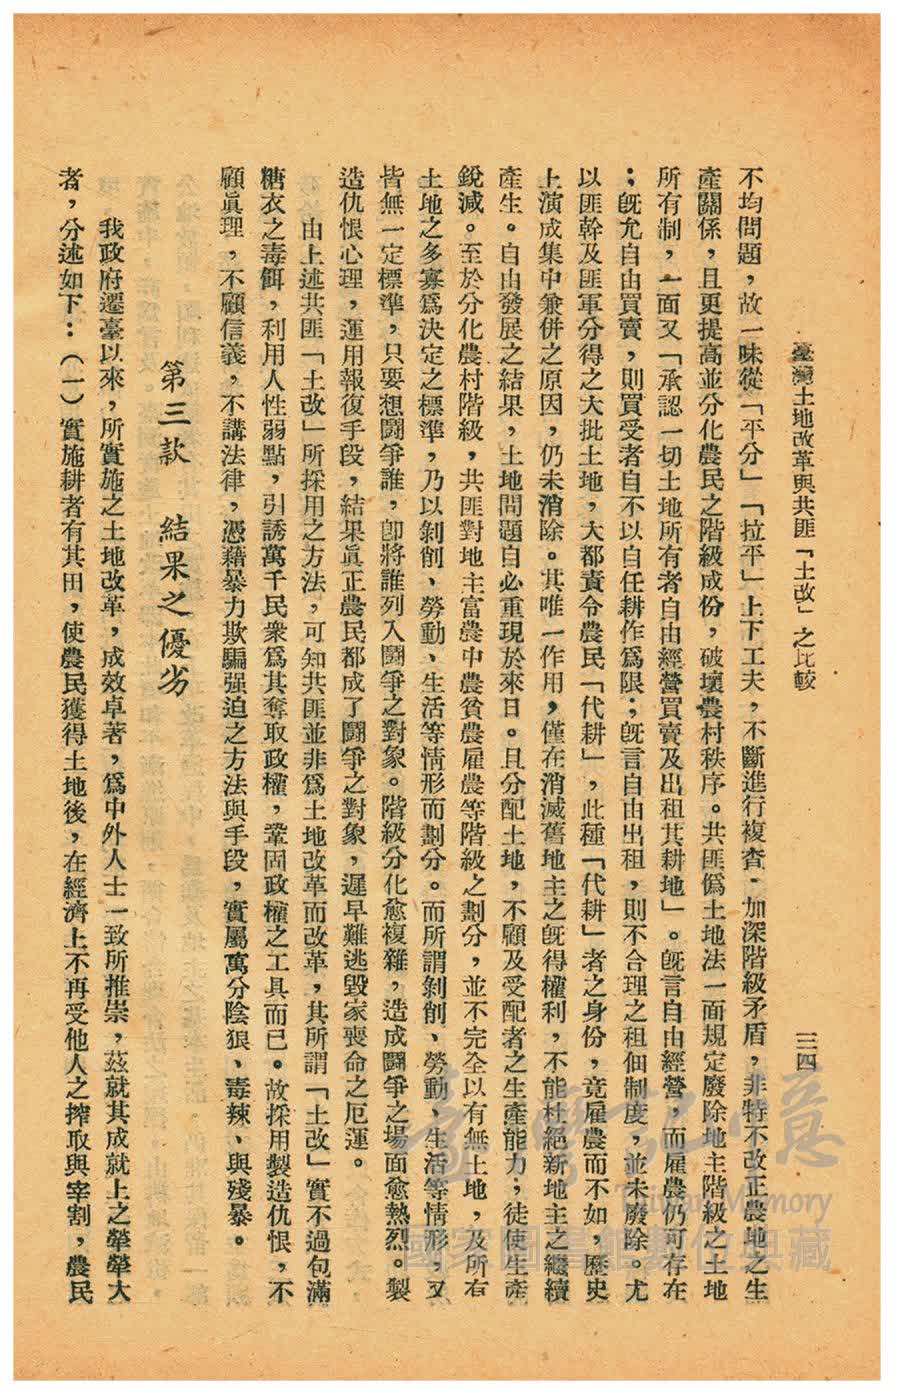 臺灣土地改革與共匪「土改」之比較
三四
不均問題，故一味從「平分」「拉平」上下工夫，不斷進行複查，加深階級矛盾，非特不改正農地之生
產關係，且更提高並分化農民之階級成份，破壞農村秩序。共匪僞土地法一面規定廢除地主階級之土地
所有制，一面又「承認一切土地所有者自由經營買賣及出租其耕地」。旣言自由經營，而雇農仍可存在
；旣允自由買賣，則買受者自不以自任耕作爲限；旣言自由出租，則不合理之租佃制度，並未廢除。尤
以匪幹及匪軍分得之大批土地，大都責令農民「代耕」，此種「代耕」者之身份，竟雇農而不如，歷史
上演成集中兼併之原因，仍未消除。其唯一作用，僅在消滅舊地主之旣得權利，不能杜絕新地主之繼續
產生。自由發展之結果，土地問題自必重現於來日。且分配土地，不顧及受配者之生產能力；徒使生產
銳減。至於分化農村階級，共匪對地主富農中農貧農雇農等階級之劃分，並不完全以有無土地，及所有
土地之多寡爲決定之標準，乃以剝削、勞動、生活等情形而劃分。而所謂剝削、勞動、生活等情形，又
皆無一定標準，只要想鬪爭誰，卽將誰列入鬪爭之對象。階級分化愈複雜，造成鬪爭之場面愈熱烈。製
造仇恨心理，運用報復手段，結果眞正農民都成了鬪爭之對象，遲早難逃毀家喪命之厄運。
由上述共匪「土改」所採用之方法，可知共匪並非爲土地改革而改革，其所謂「土改」實不過包滿
糖衣之毒餌，利用人性弱點，引誘萬千民衆爲其奪取政權，鞏固政權之工具而已。故採用製造仇恨，不
顧眞理，不顧信義，不講法律，憑藉暴力欺騙强迫之方法與手段，實屬萬分陰狠、毒辣、與殘暴。
第三款　結果之優劣
我政府遷臺以來，所實施之土地改革，成效卓著，爲中外人士一致所推崇，茲就其成就上之犖犖大
者，分述如下：（一）實施耕者有其田，使農民獲得土地後，在經濟上不再受他人之搾取與宰割，農民
臺灣記憶
Taiwan Memory
國家圖書館數位典藏